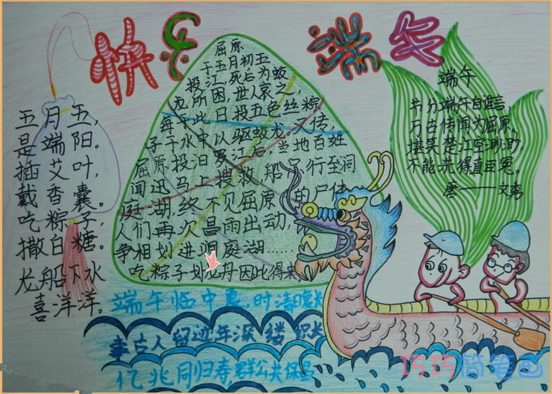 快乐端午
五月五,
是端阳。
插艾叶,
戴香囊。
吃粽子,
撒白糖。
龙船下水
喜洋洋。
屈原
于五月初五
投江,死后为蛟
龙所困,世人哀之,
每于此日投五色丝粽
子于水中,以驱蛟龙。又传,
屈原投汨罗江后,当地百姓
闻迅马上
搜救
行至洞
庭湖,终不见屈原的尸体
人们再次冒雨出动,
争相划进洞庭湖……
吃粽子
因此得来
端午
节分端午自谁言,
万古传闻为屈原。
堪笑楚江空渺渺,
不能洗得直臣冤。
唐——文秀
端午临中夏,时清
年深
亿兆同归寿,群公共保
巧巧简笔画